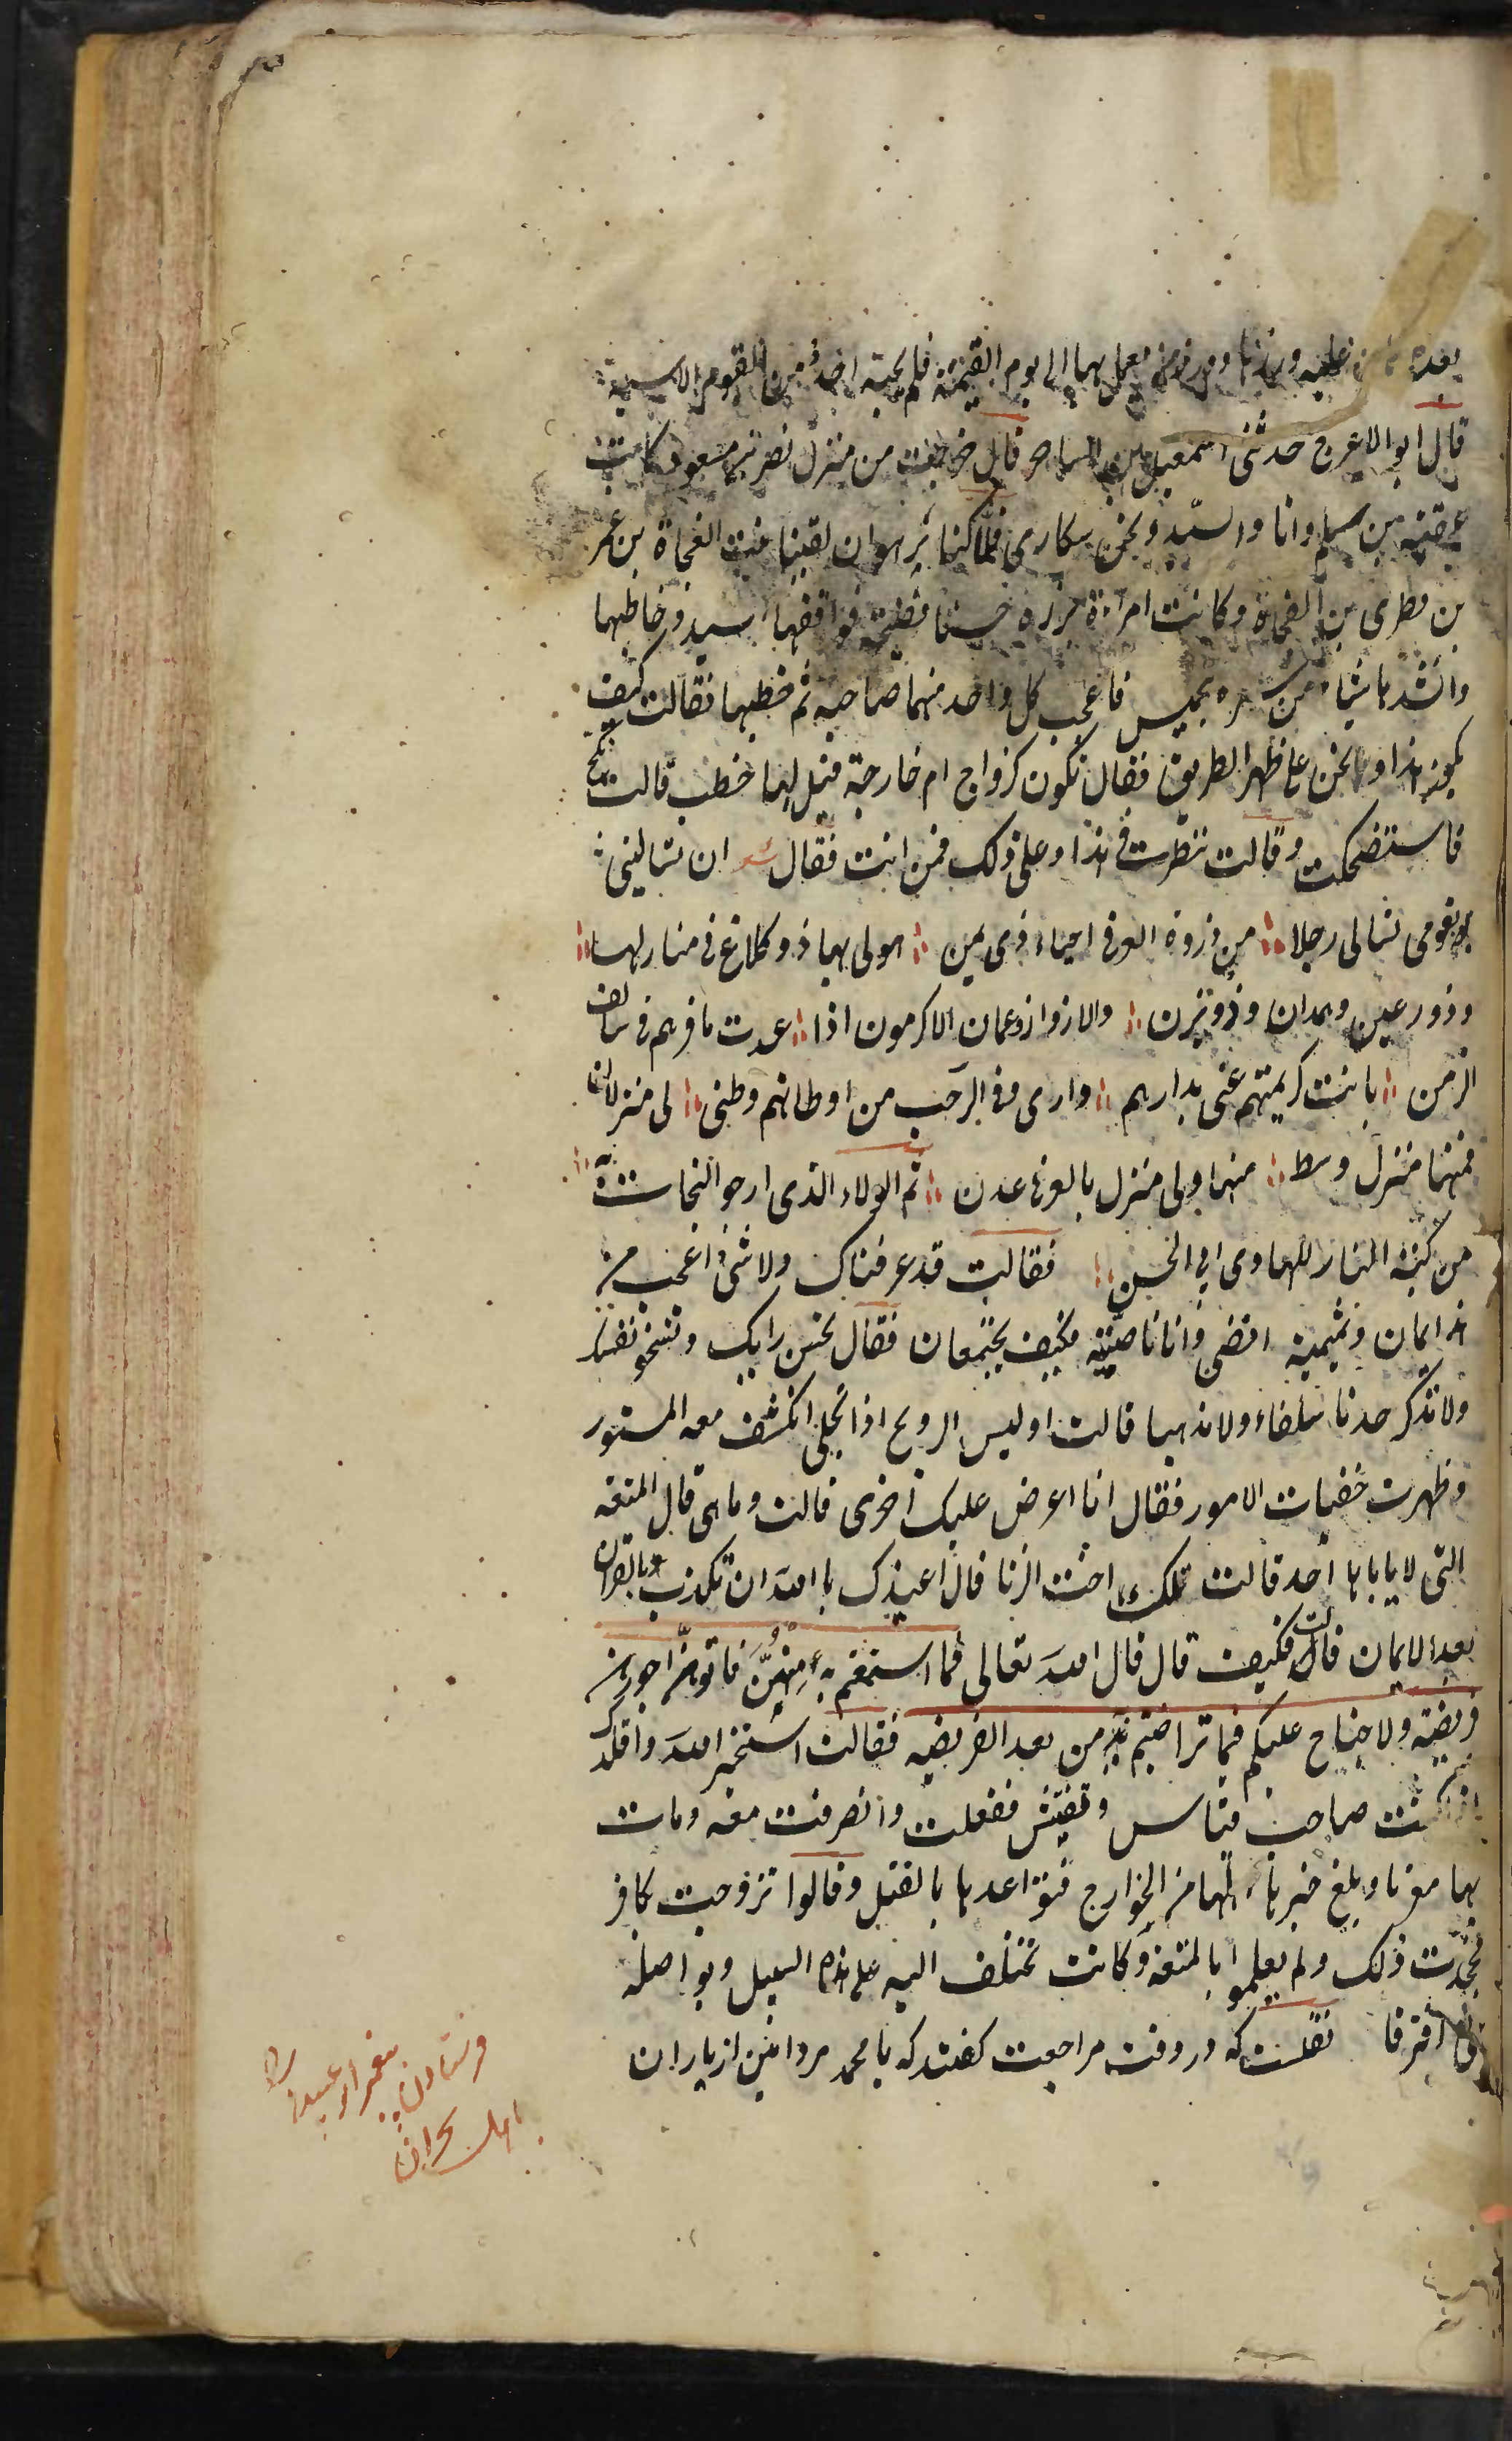 بعده من عليه وزرها ووزر من يعمل بها الى يوم القيمة فلم يجبه احد من القوم الا سيد
قال ابو الاعرج حدثنى اسمعيل بن الساحر قال خرجت من منزل نصر بن مسعود كاتب
عقبة بن سلم وانا والسيد ونحن سكارى فلما كنا بزهران لقينا بنت الفجاة بن عمر
بن قطرى بن الفجاة وكانت امراة برزة حسنا فصيحة فواقفها السيد وخاطبها
وانشدها شيئا من شعره بجميش فاعجب كل واحد منهما صاحبه ثم خطبها فقالت كيف
يكون هذا ونحن على ظهر الطريق فقال تكون كزواج ام خارجة قيل لها خطب قالت نكح
فاستضحكت وقالت ننظر فى هذا وعلى ذلك فمن انت فقال شعر ان تسالينى
بقومى تسالى رجلا من ذروة العز فى احياء ذى يمن حولى بها ذو كلاع فى منازلها
وذورعين وهمدان وذويزن والازد ازد عمان الاكرمون اذا عدت مآثرهم فى سالف
الزمن بانت كريمتهم عنى بدارهم دارى وفى الرحب من اوطانهم وطنى لى منزلان
فمنهما منزل وسط منها ولى منزل بالعز فى عدن ثم الولاء الذى ارجو النجات به
من كبة النار للهادى ابى الحسن فقالت قد عرفناك ولا شىء اعجب من
هذا يمان وتميمية رافضى واناناصبية فكيف يجتمعان فقال بحسن رايك وتسخو نفسك
ولا تذكر احدنا سلفاء ولا مذهبا قالت اوليس التزويج اذا تجلى انكشف معه المستور
وظهرت خفيات الامور فقال انا اعرض عليك اخرى قالت وما هى قال المتعه
التى لا ياباها احد قالت تلك اخت الزنا قال اعيذك بالله ان تكذب بالقران
بعد الايمان قالت فكيف قال قال الله تعالى فما استمتعتم به منهن فاتوهن اجورهن
فريضة ولا جناح عليكم فيما تراضيتم به من بعد الفريضه فقالت استخير الله واقلدك
ان كنت صاحب قياس وتفتيش ففعلت وانصرفت معه وبات
بها معرسا وبلغ خبرها اهلها من الخوارج فتواعدها بالقتل وقالوا تزوجت كافر
فجحدت ذلك ولم يعلموا بالمتعة وكانت تختلف اليه على هذا السبيل وتواصله
حتى افترقا نقلست كه در وقت مراجعت گفتند كه يا محمد مرد امين از ياران
فرستادن پيغمبر ابو عبيده را
باهل نجران